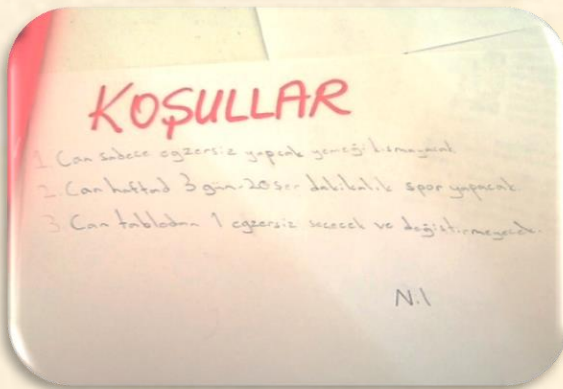 KOŞULLAR
1. Can sadece egzersiz yapcak yemeği kısmayacak
2. Can haftad 3 gün 20şer dakikalık spor yapacak
3. Can tablodan 1 egzersiz seçecek ve değiştirmeyecek.
Nil